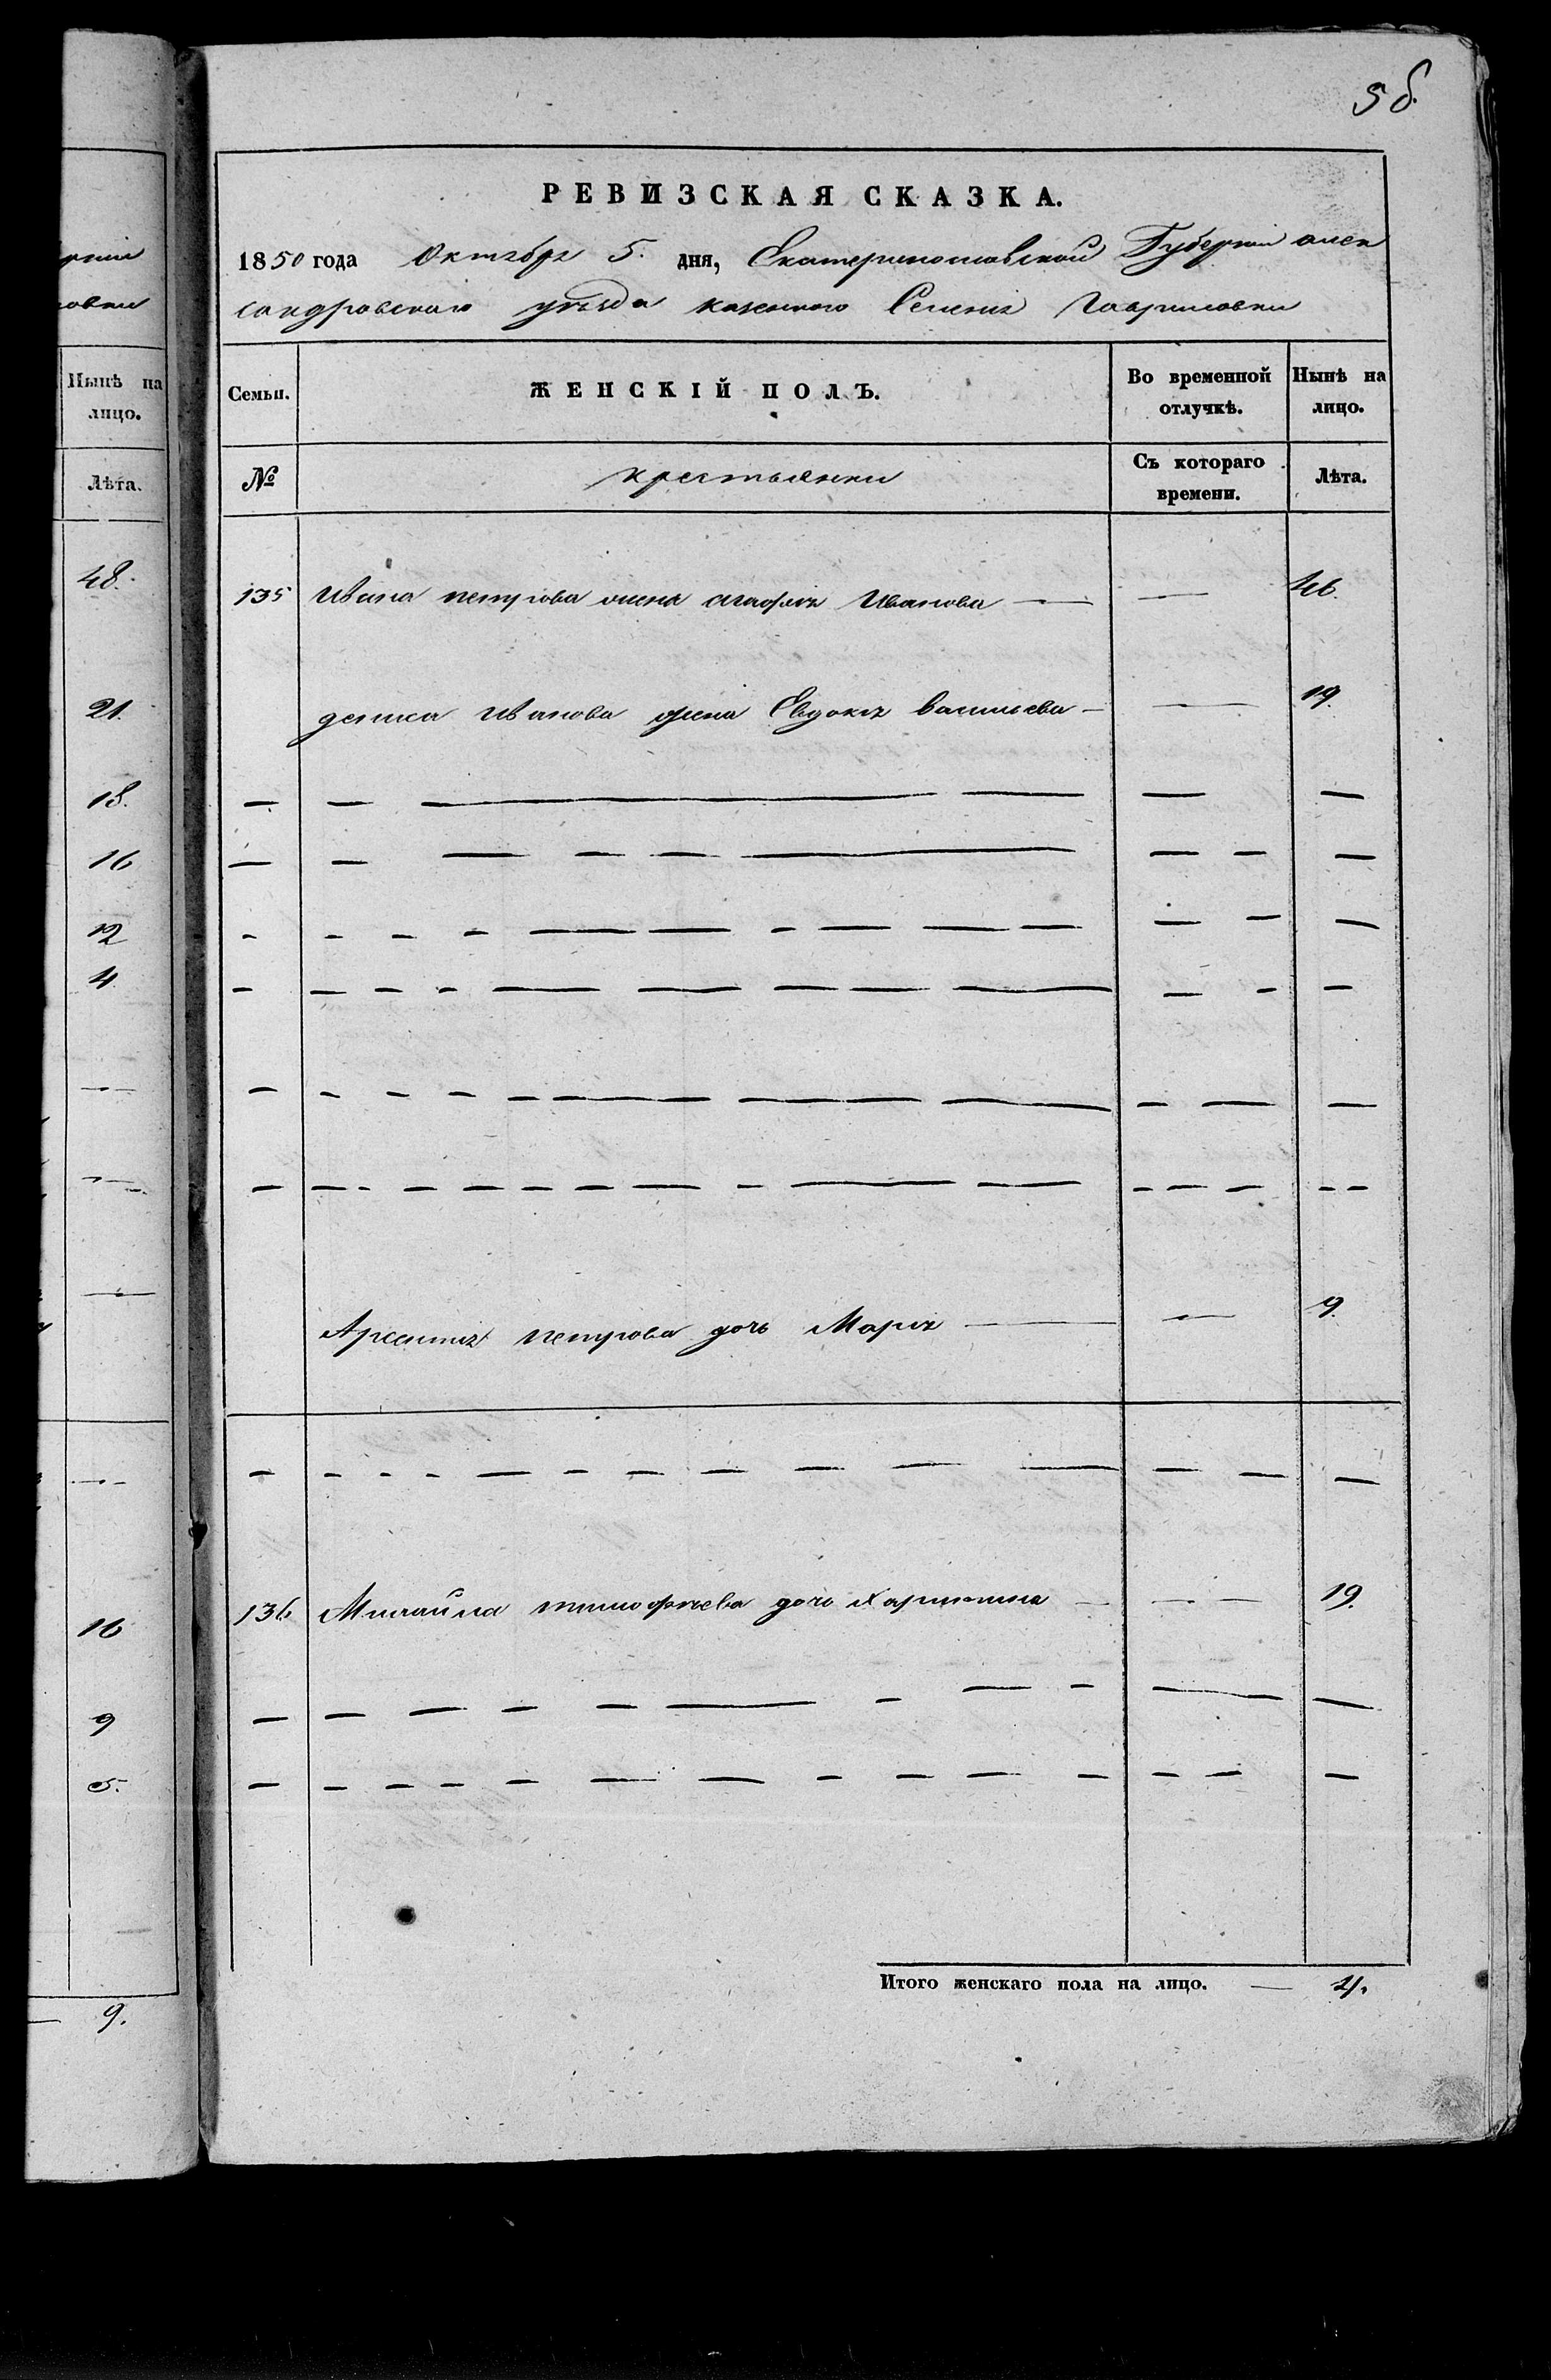 рніи
ровки
Нынѣ на
лицо.
Лѣта.
48.
21.
18.
16
12
4.
16
9
5.
9.
56.
РЕВИЗСКАЯ СКАЗКА.
1850 года Октября 5. дня, Екатеринославской Губерніи алек
сандровскаго уѣзда казенного Селенія Гавриловки
Семьи. ЖЕНСКІЙ ПОЛЪ. Во временной отлучкѣ. Нынѣ на лицо.
№ крестьянки Съ котораго времени. Лѣта.
135 Ивана петрова жена агафія Иванова — — 46.
дениса Иванова жена Евдокія васильева — — 19.
Арсентія петрова дочь Марія — — 9.
136 Михайла тимофѣева дочь Харитина — — — 19.
Итого женскаго пола на лицо. — 4.